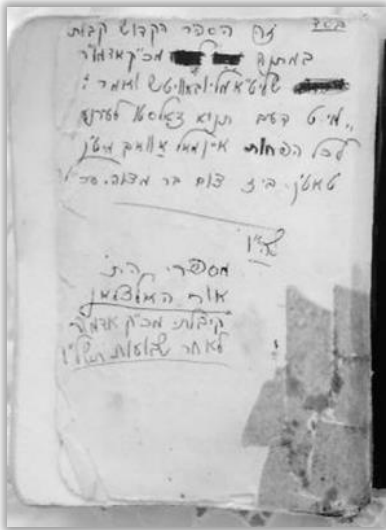 בס"ד זה הספר הקדוש קבלתי
במתנה מכ"ק אדמו"ר
שליט"א מליובאוויטש ואמר:
"מיט דעם תניא זאלסטו לערנען
לכל הפחות איינמאל א וואך מיט'ן
טאטן. ביז צום בר מצוה. עכ"ל
מספרי הת'
אור האלצמן
קיבלתי מכ"ק אדמו"ר
לאחר שבועות תשל"ו